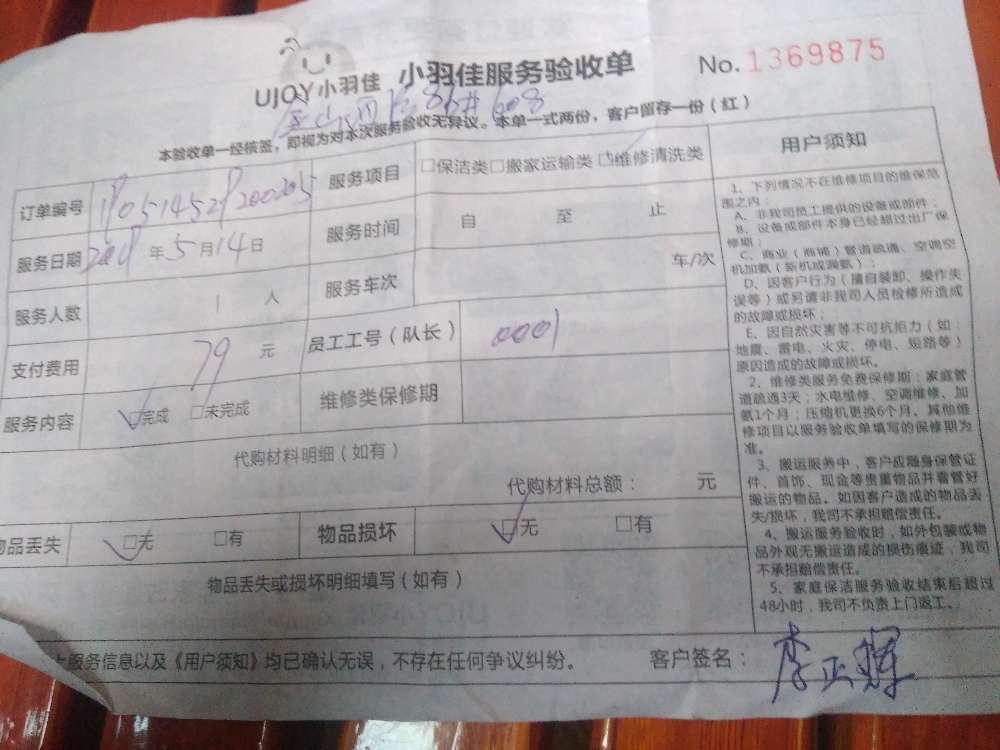 UJOY小羽佳 小羽佳服务验收单 No.1369875
86# 608
本验收单一经核签，即视为对本次服务验收无异议。本单一式两份，客户留存一份（红）
订单编号 服务项目 □保洁类□搬家运输类☑维修清洗类
服务日期 年5月14日 服务时间 自 至 止
服务人数 1 人 服务车次 车/次
支付费用 79 元 员工工号（队长） 0001
服务内容 ☑完成 □未完成 维修类保修期
代购材料明细（如有）
代购材料总额： 元
物品丢失 ☑无 □有 物品损坏 ☑无 □有
物品丢失或损坏明细填写（如有）
上服务信息以及《用户须知》均已确认无误，不存在任何争议纠纷。 客户签名：李正辉
用户须知
1、下列情况不在维修项目的维保范
围之内：
A、非我司员工提供的设备或部件；
B、设备或部件本身已经超过出厂保
修期；
C、商业（商铺）管道疏通、空调空
机加氨（新机或漏氨）；
D、因客户行为（擅自装卸、操作失
误等）或另请非我司人员检修所造成
的故障或损坏；
E、因自然灾害等不可抗拒力（如：
地震、雷电、火灾、停电、短路等）
原因造成的故障或损坏。
2、维修类服务免费保修期：家庭管
道疏通3天；水电维修、空调维修、加
氨1个月；压缩机更换6个月。其他维
修项目以服务验收单填写的保修期为
准。
3、搬运服务中，客户应随身保管证
件、首饰、现金等贵重物品并看管好
搬运的物品。如因客户造成的物品丢
失/损坏，我司不承担赔偿责任。
4、搬运服务验收时，如外包装或物
品外观无搬运造成的损伤痕迹，我司
不承担赔偿责任。
5、家庭保洁服务验收结束后超过
48小时，我司不负责上门返工。